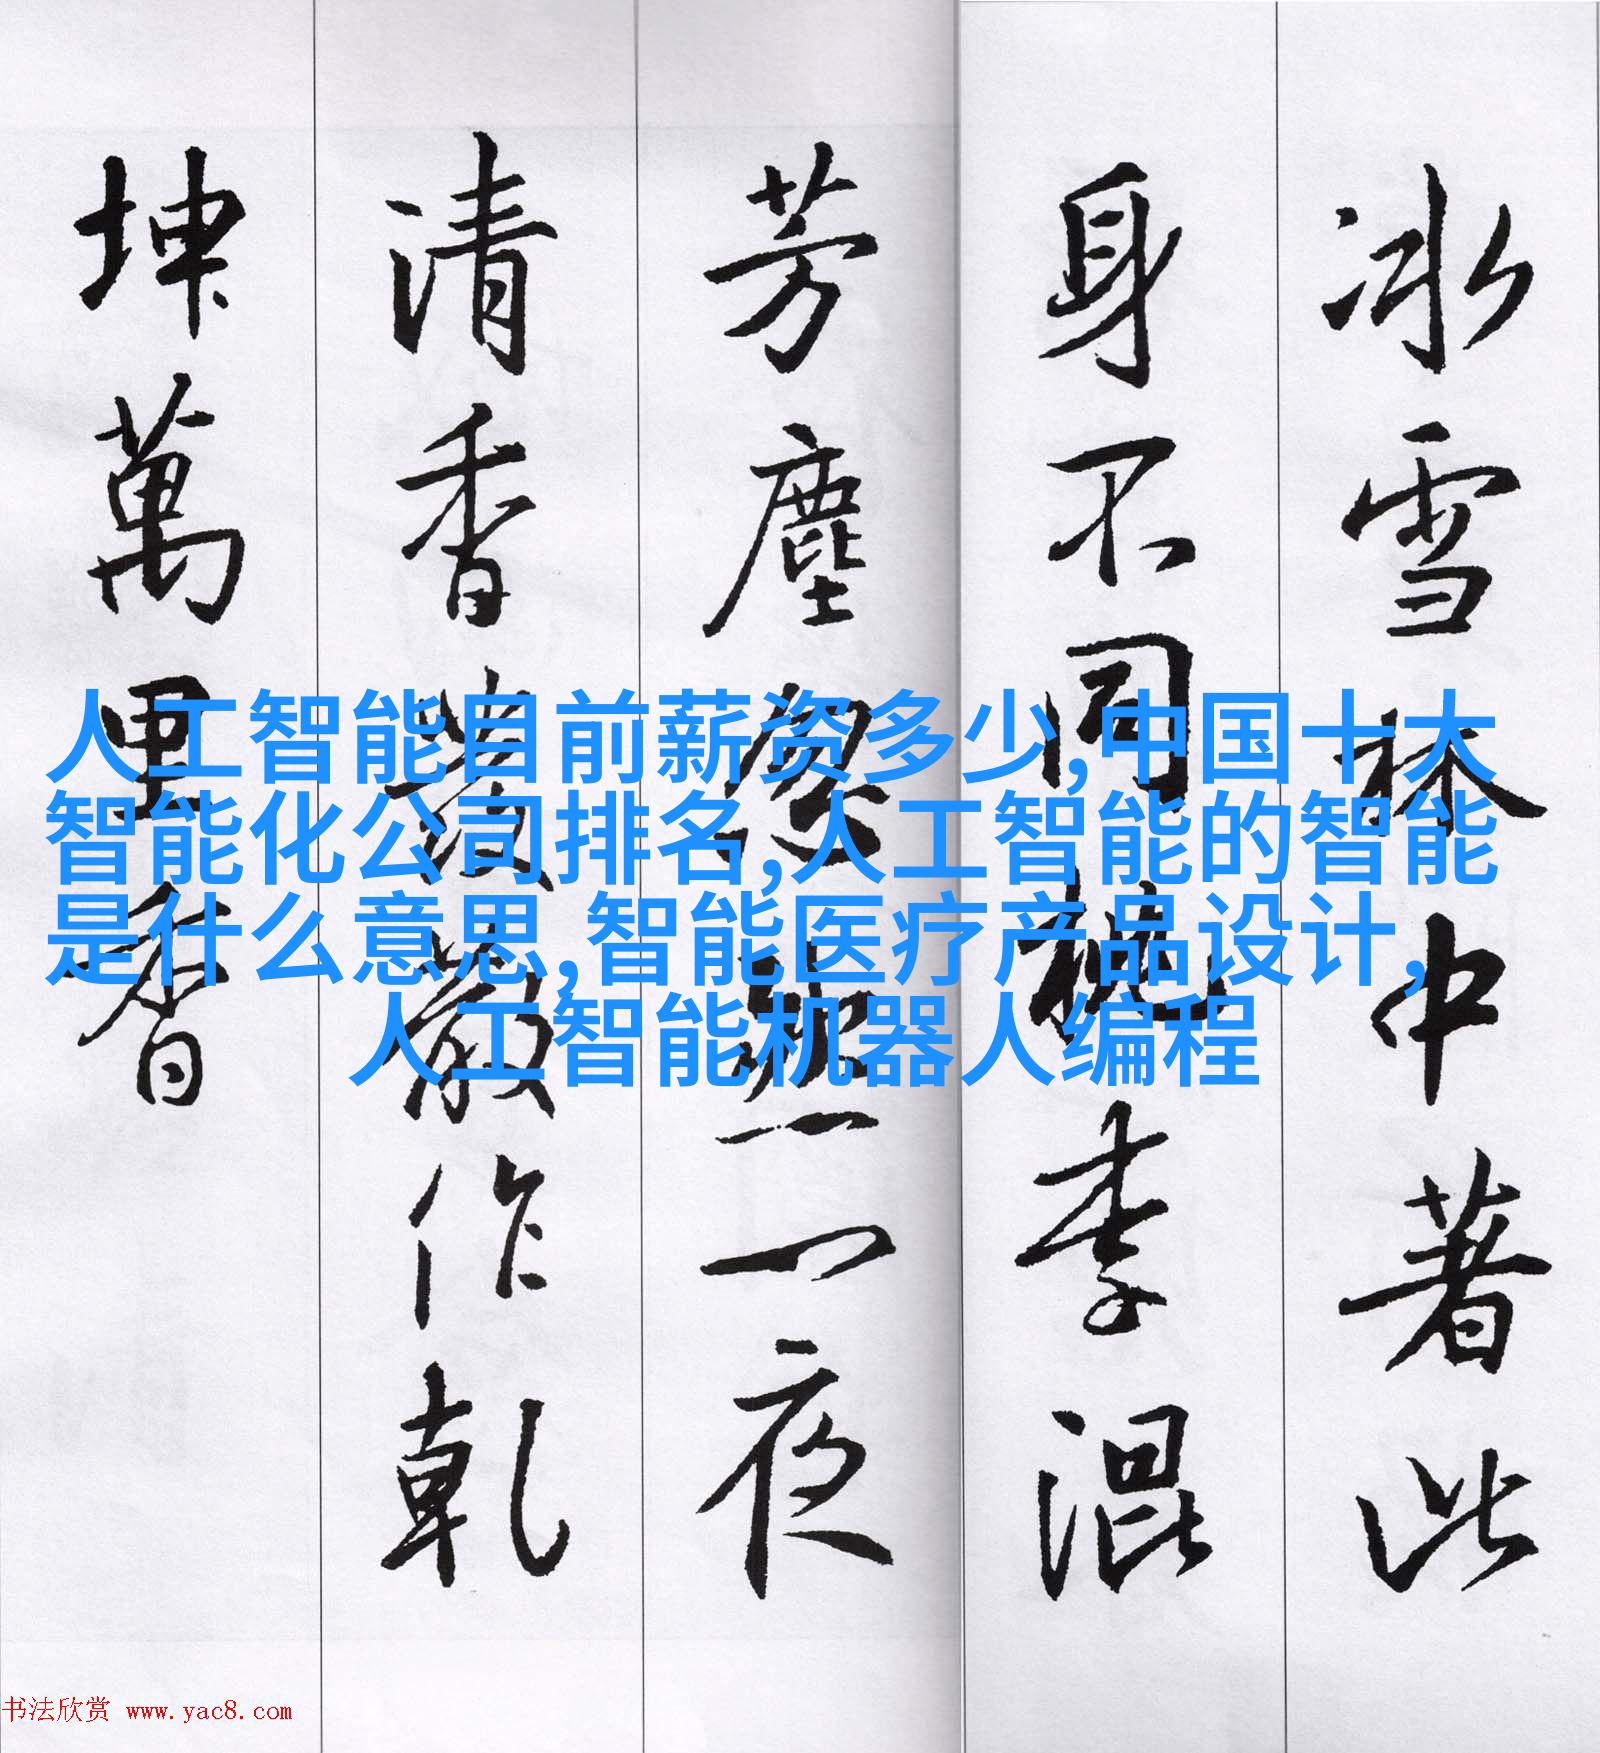 冰雪林中著此
身不同桃李混
芳塵忽然一夜
清香發散作乾
坤萬里香
人工智能目前薪资多少,中国十大
智能化公司排名,人工智能的智能
是什么意思,智能医疗产品设计,
人工智能机器人编程
书法欣赏 www.yac8.com